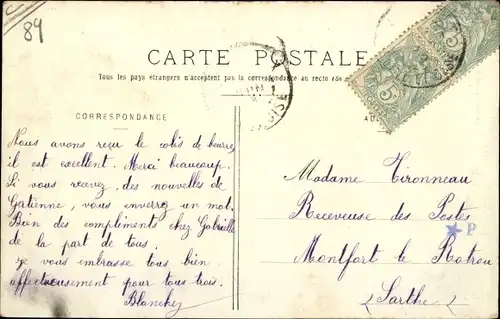 89
CARTE POSTALE
Tous les pays étrangers n'acceptent pas la correspondance au recto
CORRESPONDANCE
Nous avons reçu le colis de beurre,
il est excellent. Merci beaucoup.
Si vous recevez, des nouvelles de
Gatienne, vous enverrez un mot.
Bien des compliments chez Gabrielle
de la part de tous.
Je vous embrasse tous bien
affectueusement pour tous trois.
Blanche
Madame Tironneau
Receveuse des Postes
P
Montfort le Rotrou
(Sarthe)